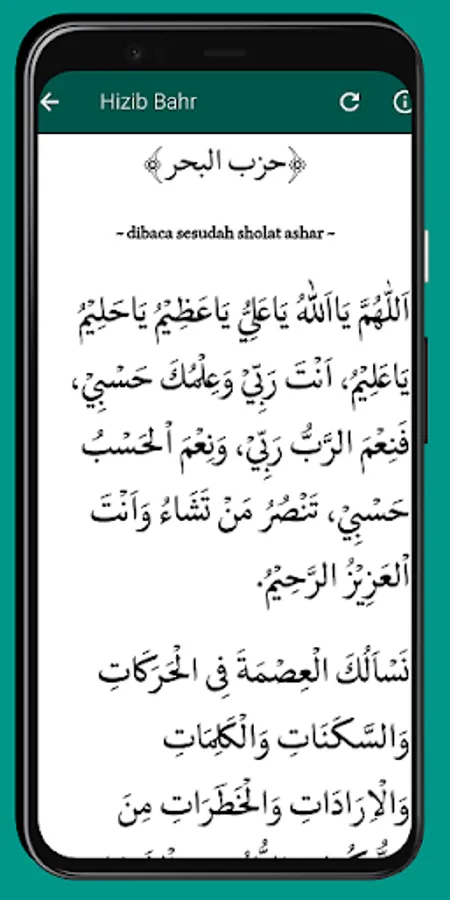 Hizib Bahr
﴿حزب البحر﴾
~ dibaca sesudah sholat ashar ~
اَللّٰهُمَّ يَااَللهُ يَاعَلِيُّ يَاعَظِيْمُ يَاحَلِيْمُ
يَاعَلِيْمُ، اَنْتَ رَبِّيْ وَعِلْمُكَ حَسْبِيْ،
فَنِعْمَ الرَّبُّ رَبِّيْ، وَنِعْمَ اْلحَسْبُ
حَسْبِيْ، تَنْصُرُ مَنْ تَشَاءُ وَاَنْتَ
اْلعَزِيْزُ الرَّحِيْمُ.
نَسْاَلُكَ الْعِصْمَةَ فِى الْحَرَكَاتِ
وَالسَّكَنَاتِ وَالْكَلِمَاتِ
وَالْاِرَادَاتِ وَالْخَطَرَاتِ مِنَ